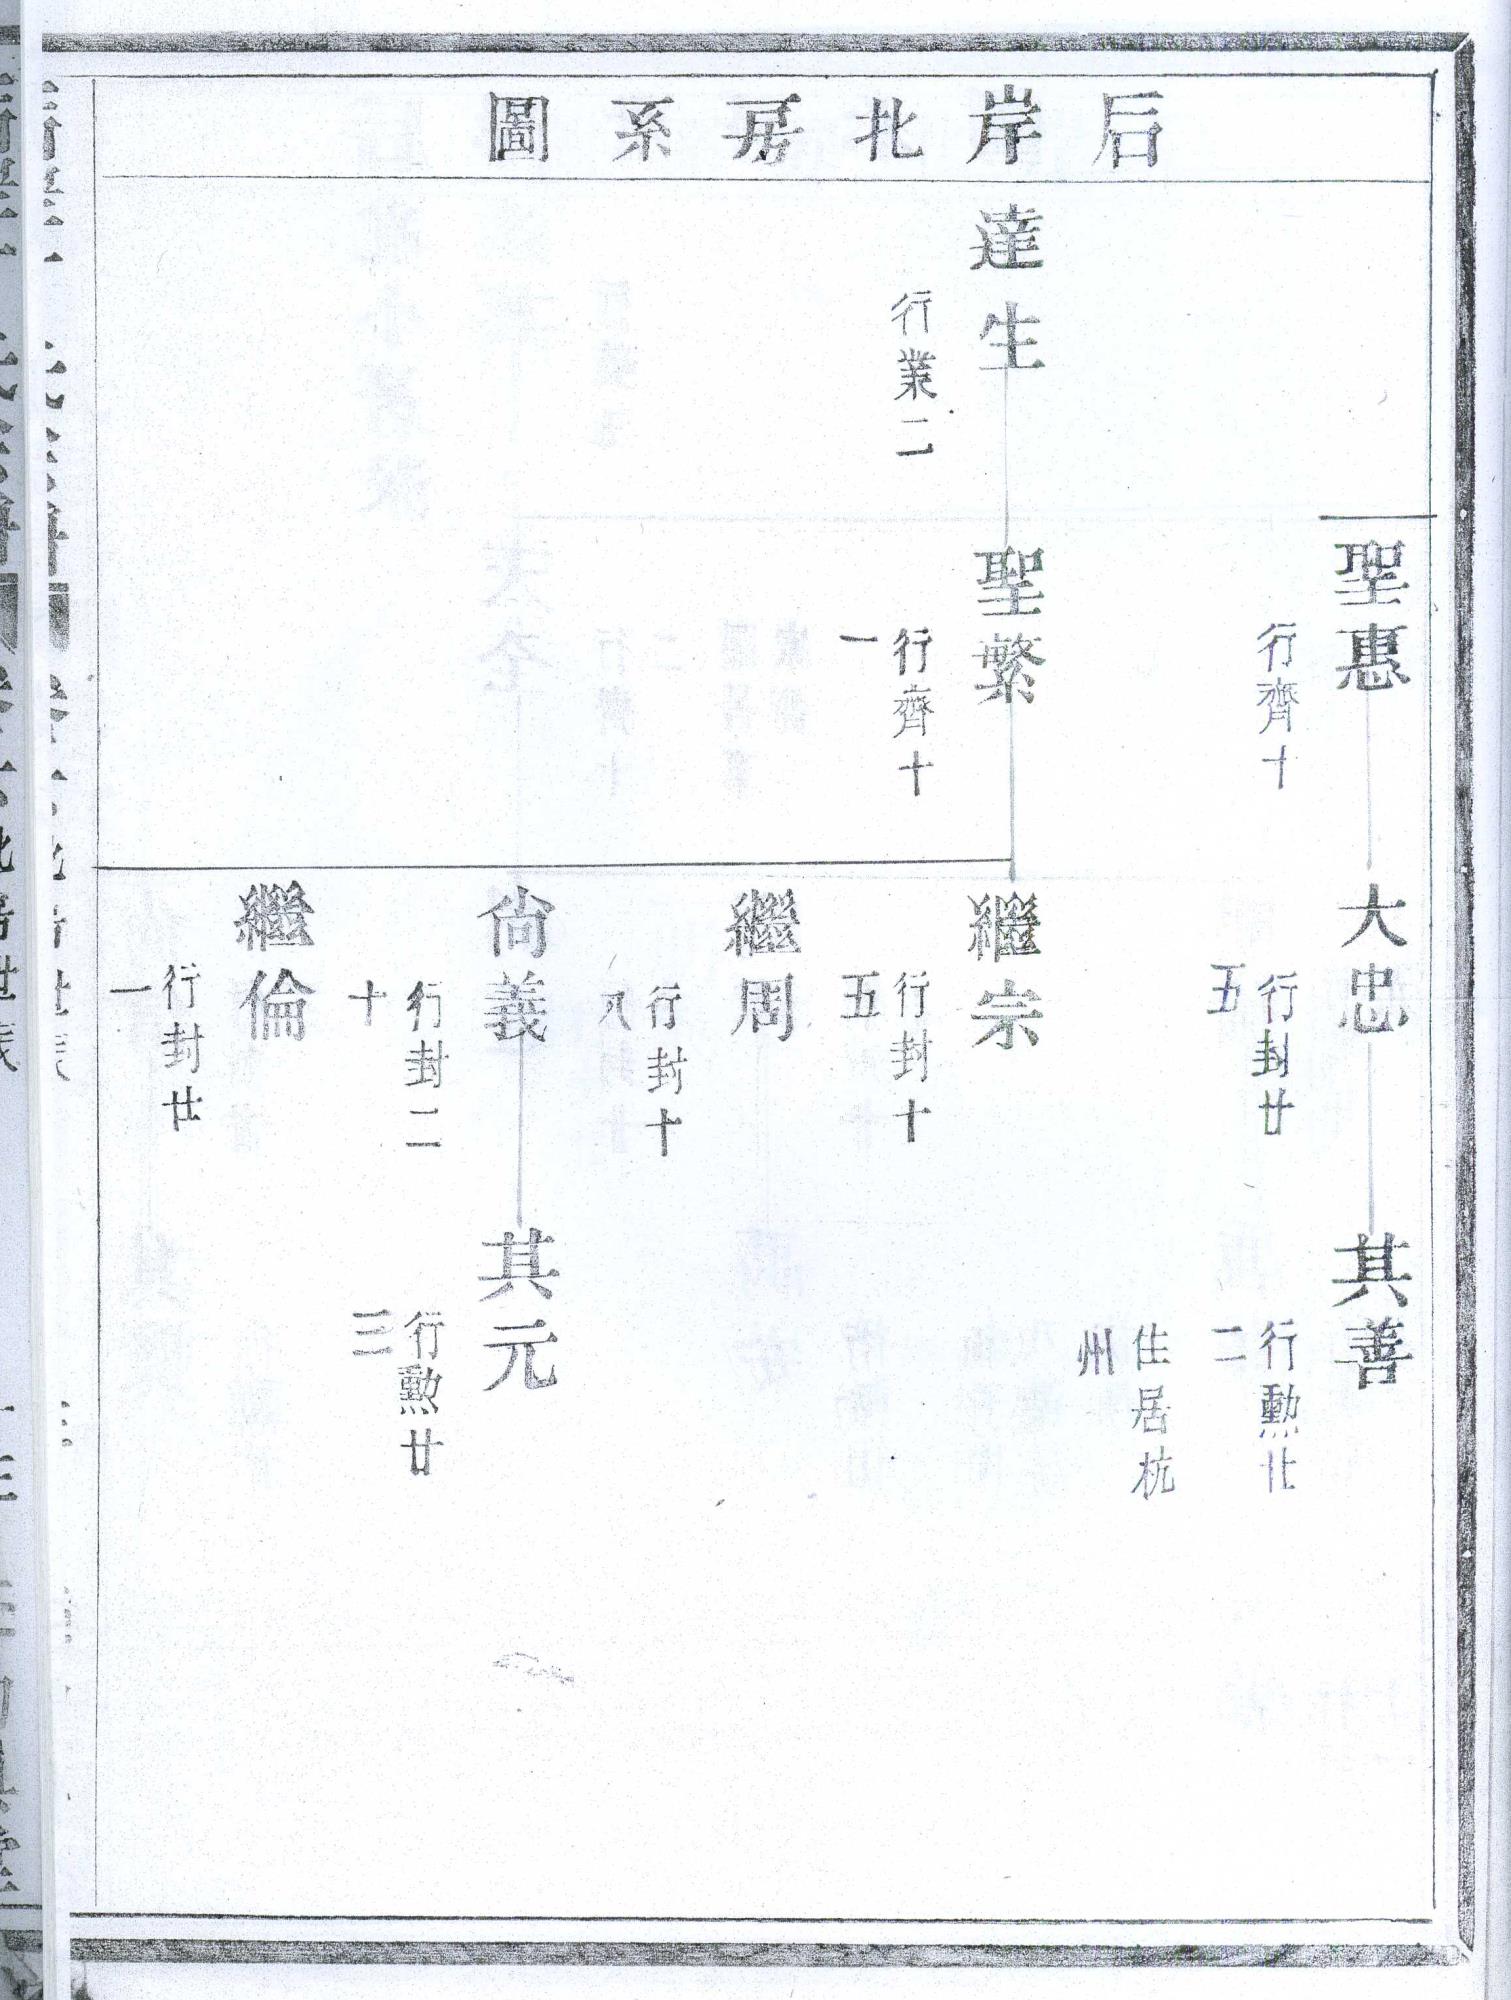 后岸北房系圖
聖惠
行齊十
大忠
行封廿
五
其善
行勲卄
二
住居杭
州
達生
行業二
聖繁
行齊十
一
繼宗
行封十
五
繼周
行封十
八
尙義
行封二
十
其元
行勲廿
三
繼倫
行封廿
一